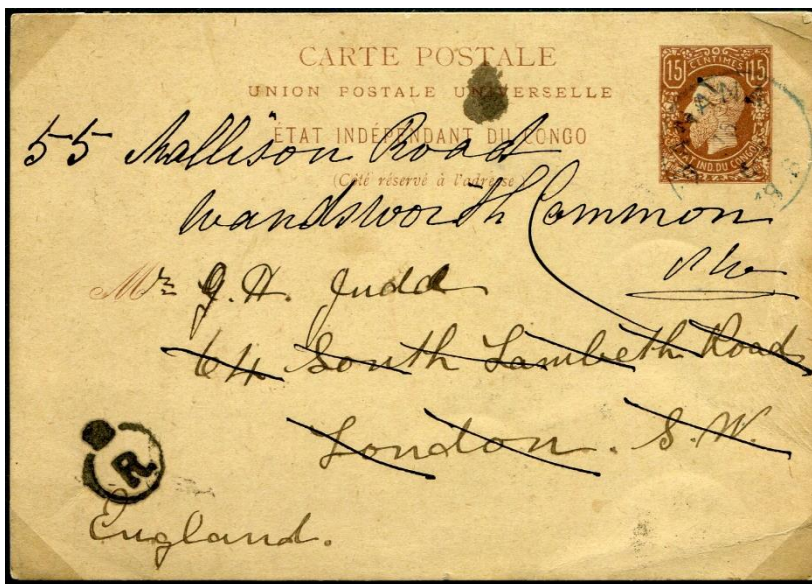 CARTE POSTALE
UNION POSTALE UNIVERSELLE
ÉTAT INDÉPENDANT DU CONGO
(Côté réservé à l'adresse)
15 CENTIMES 15
ETAT IND. DU CONGO
55 Mallison Road
Wandsworth Common
Mr G. H. Judd
64 South Lambeth Road
London. S.W.
R
England.